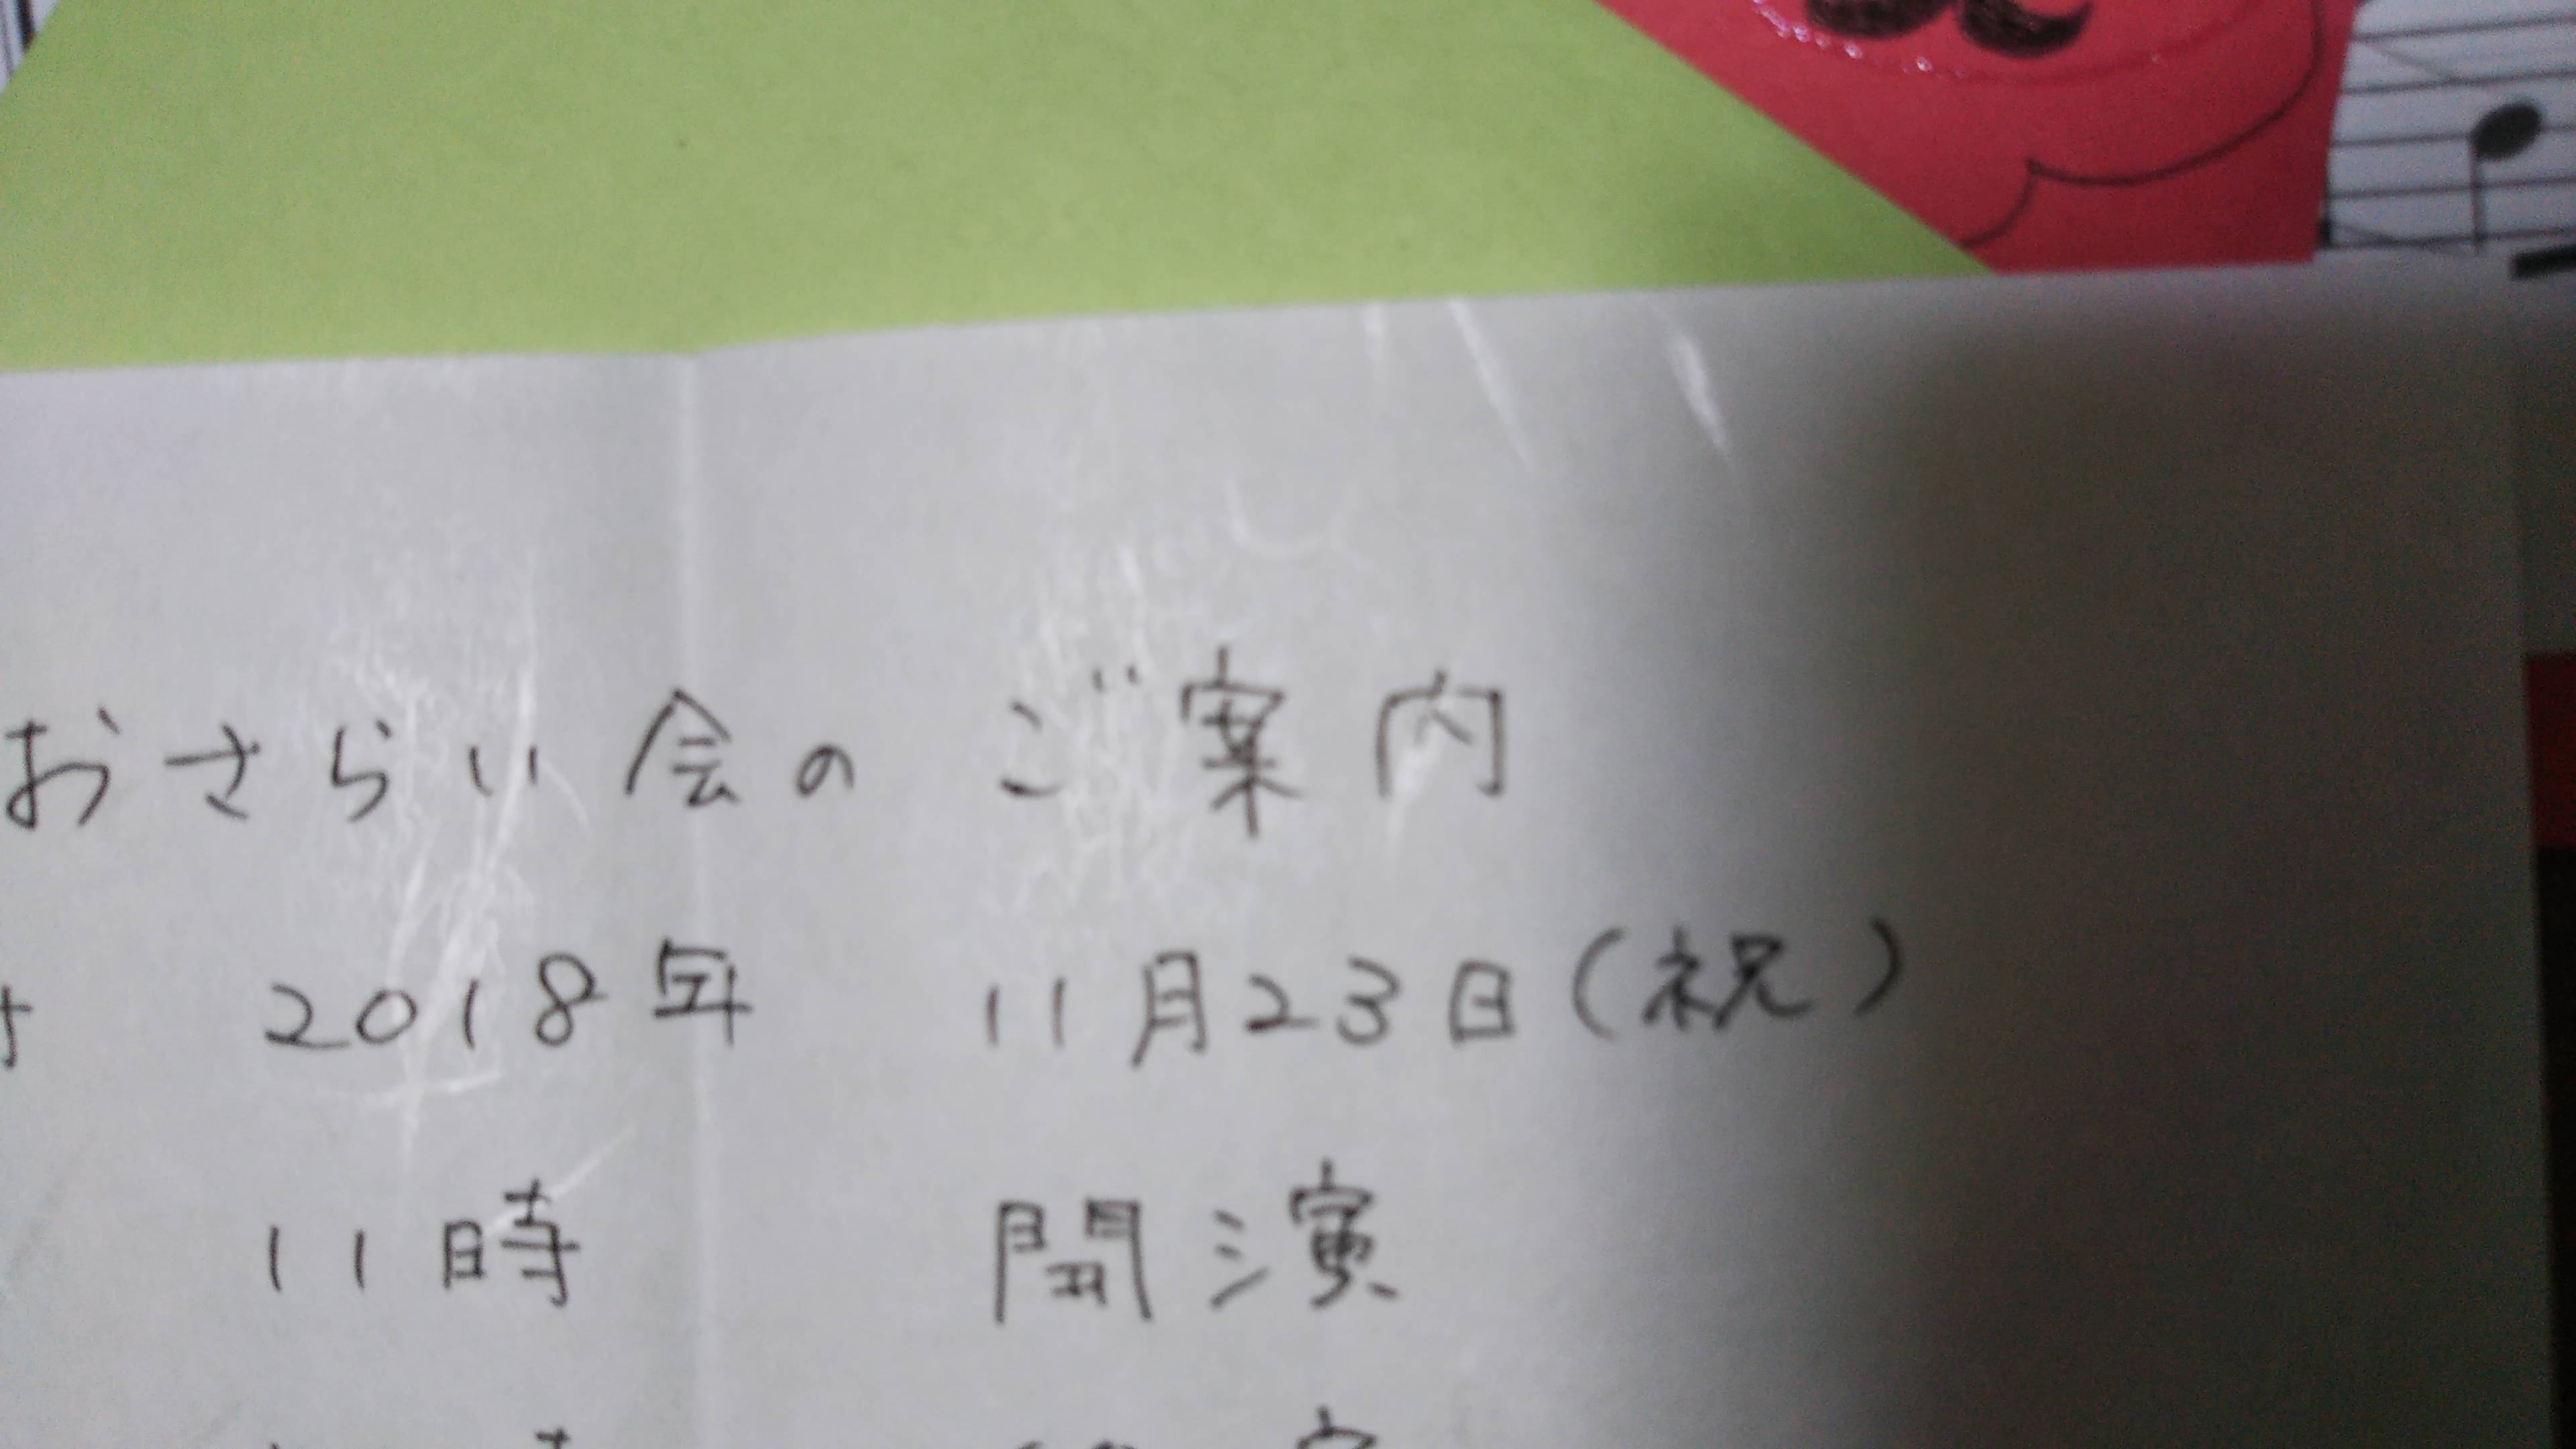 おさらい会の ご案内
2018年 11月23日(祝)
11時 開演